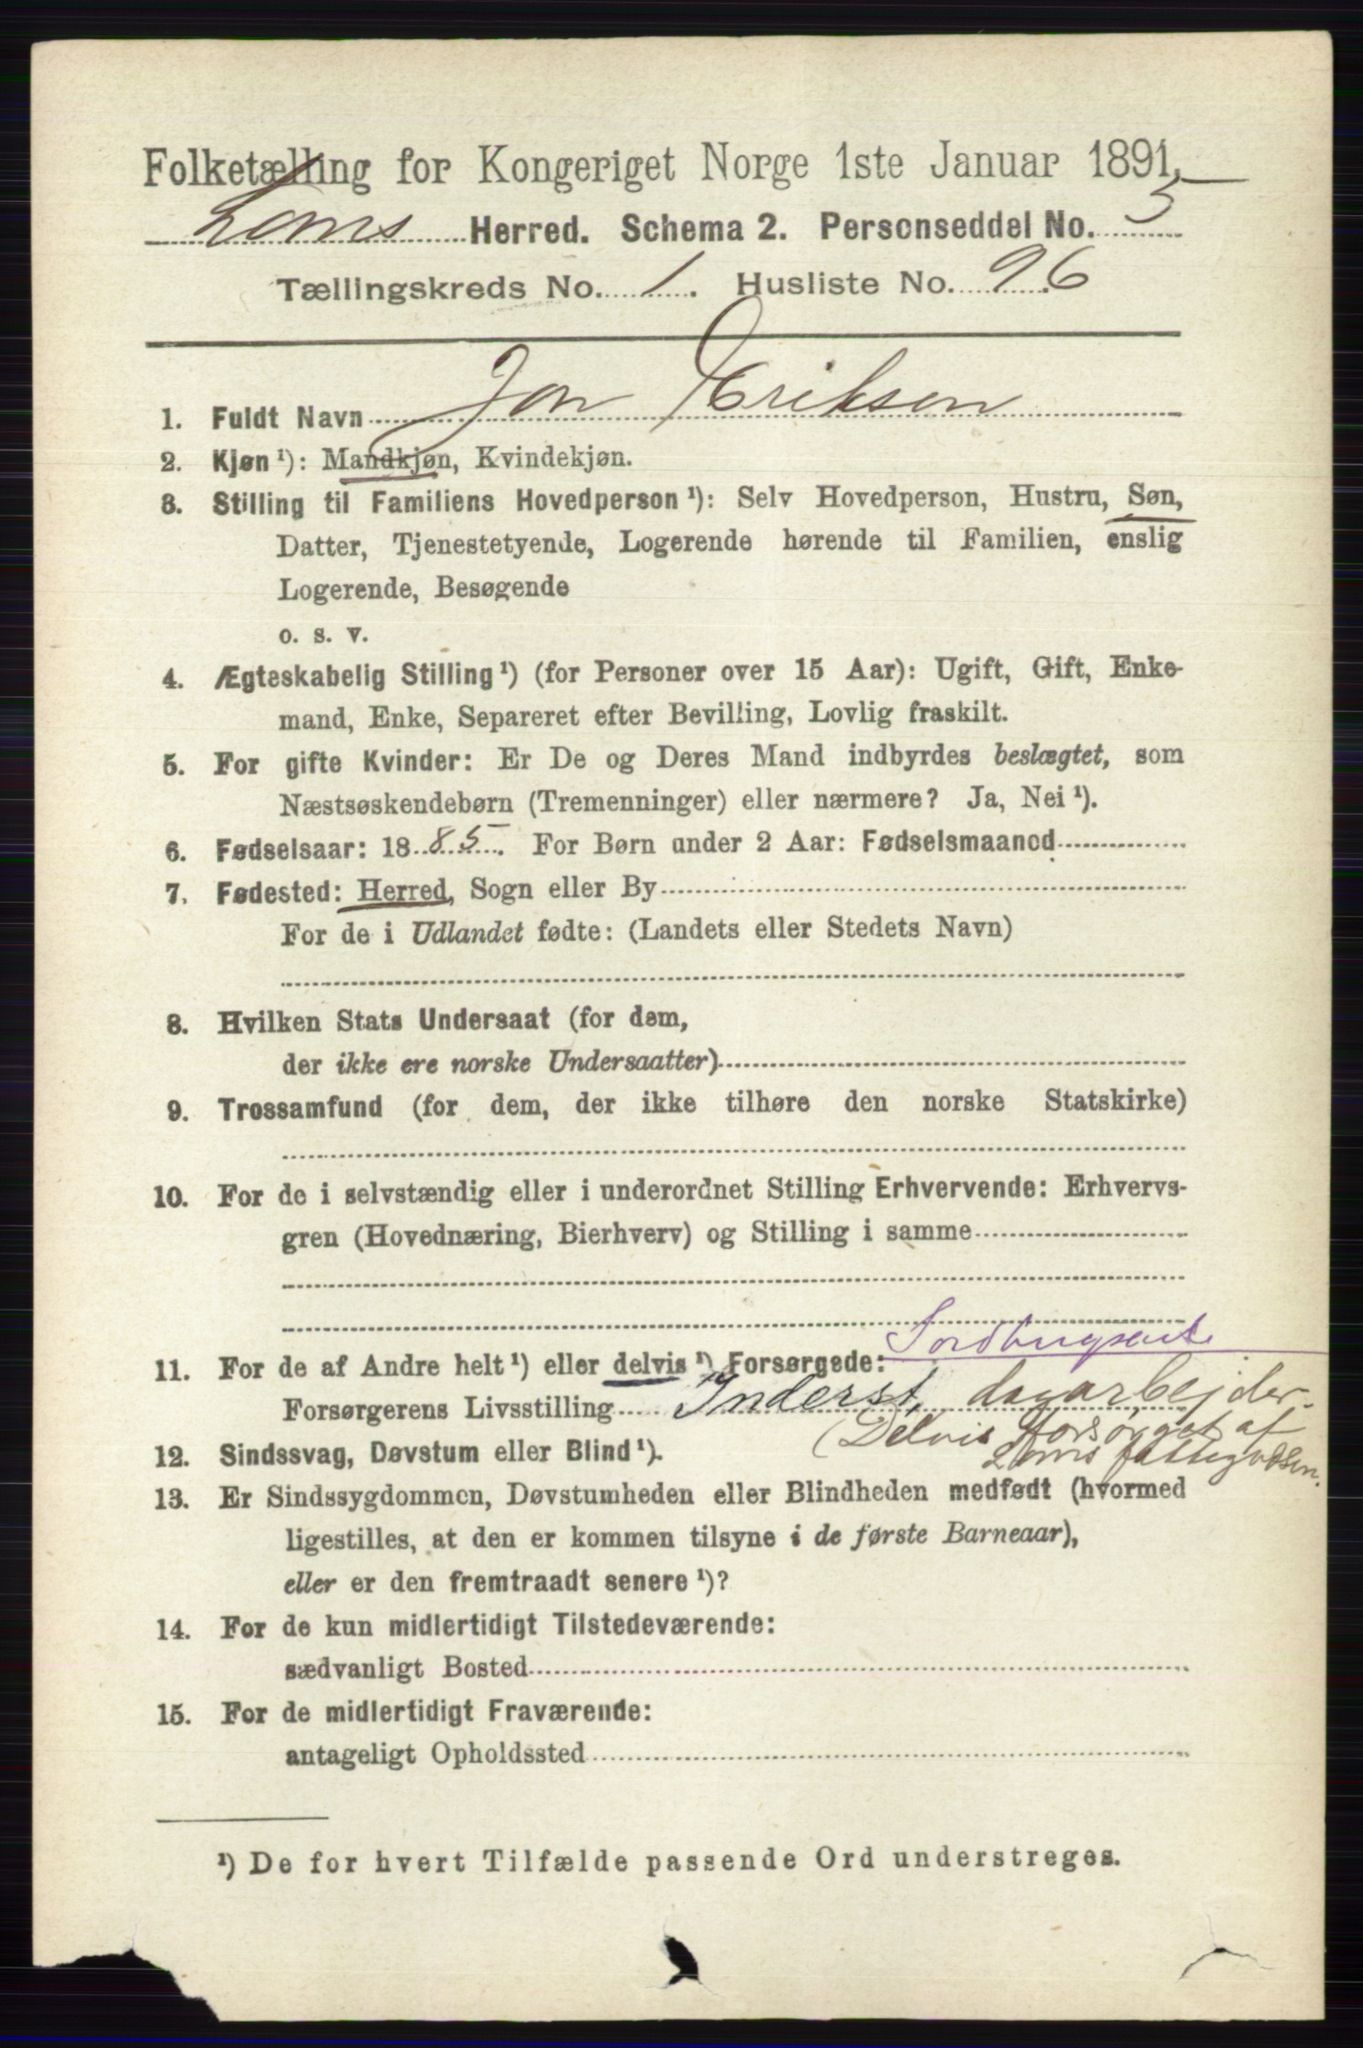 Folketælling for Kongeriget Norge 1ste Januar 1891.
Loms Herred. Schema 2. Personseddel No. 5
Tællingskreds No. 1. Husliste No. 96
1. Fuldt Navn Jon Eriksen
2. Kjøn ¹): Mandkjøn, Kvindekjøn.
3. Stilling til Familiens Hovedperson ¹): Selv Hovedperson, Hustru, Søn,
Datter, Tjenestetyende, Logerende hørende til Familien, enslig
Logerende, Besøgende
o. s. v.
4. Ægteskabelig Stilling ¹) (for Personer over 15 Aar): Ugift, Gift, Enke-
mand, Enke, Separeret efter Bevilling, Lovlig fraskilt.
5. For gifte Kvinder: Er De og Deres Mand indbyrdes beslægtet, som
Næstsøskendebørn (Tremenninger) eller nærmere? Ja, Nei ¹).
6. Fødselsaar: 1885. For Børn under 2 Aar: Fødselsmaaned
7. Fødested: Herred, Sogn eller By
For de i Udlandet fødte: (Landets eller Stedets Navn)
8. Hvilken Stats Undersaat (for dem,
der ikke ere norske Undersaatter)
9. Trossamfund (for dem, der ikke tilhøre den norske Statskirke)
10. For de i selvstændig eller i underordnet Stilling Erhvervende: Erhvervs-
gren (Hovednæring, Bierhverv) og Stilling i samme
11. For de af Andre helt ¹) eller delvis ¹) Forsørgede:
Forsørgerens Livsstilling Inderst, dagarbejder.
(Delvis forsørget af
Loms fattigvæsen.
12. Sindssvag, Døvstum eller Blind ¹).
13. Er Sindssygdommen, Døvstumheden eller Blindheden medfødt (hvormed
ligestilles, at den er kommen tilsyne i de første Barneaar),
eller er den fremtraadt senere ¹)?
14. For de kun midlertidigt Tilstedeværende:
sædvanligt Bosted
15. For de midlertidigt Fraværende:
antageligt Opholdssted
¹) De for hvert Tilfælde passende Ord understreges.